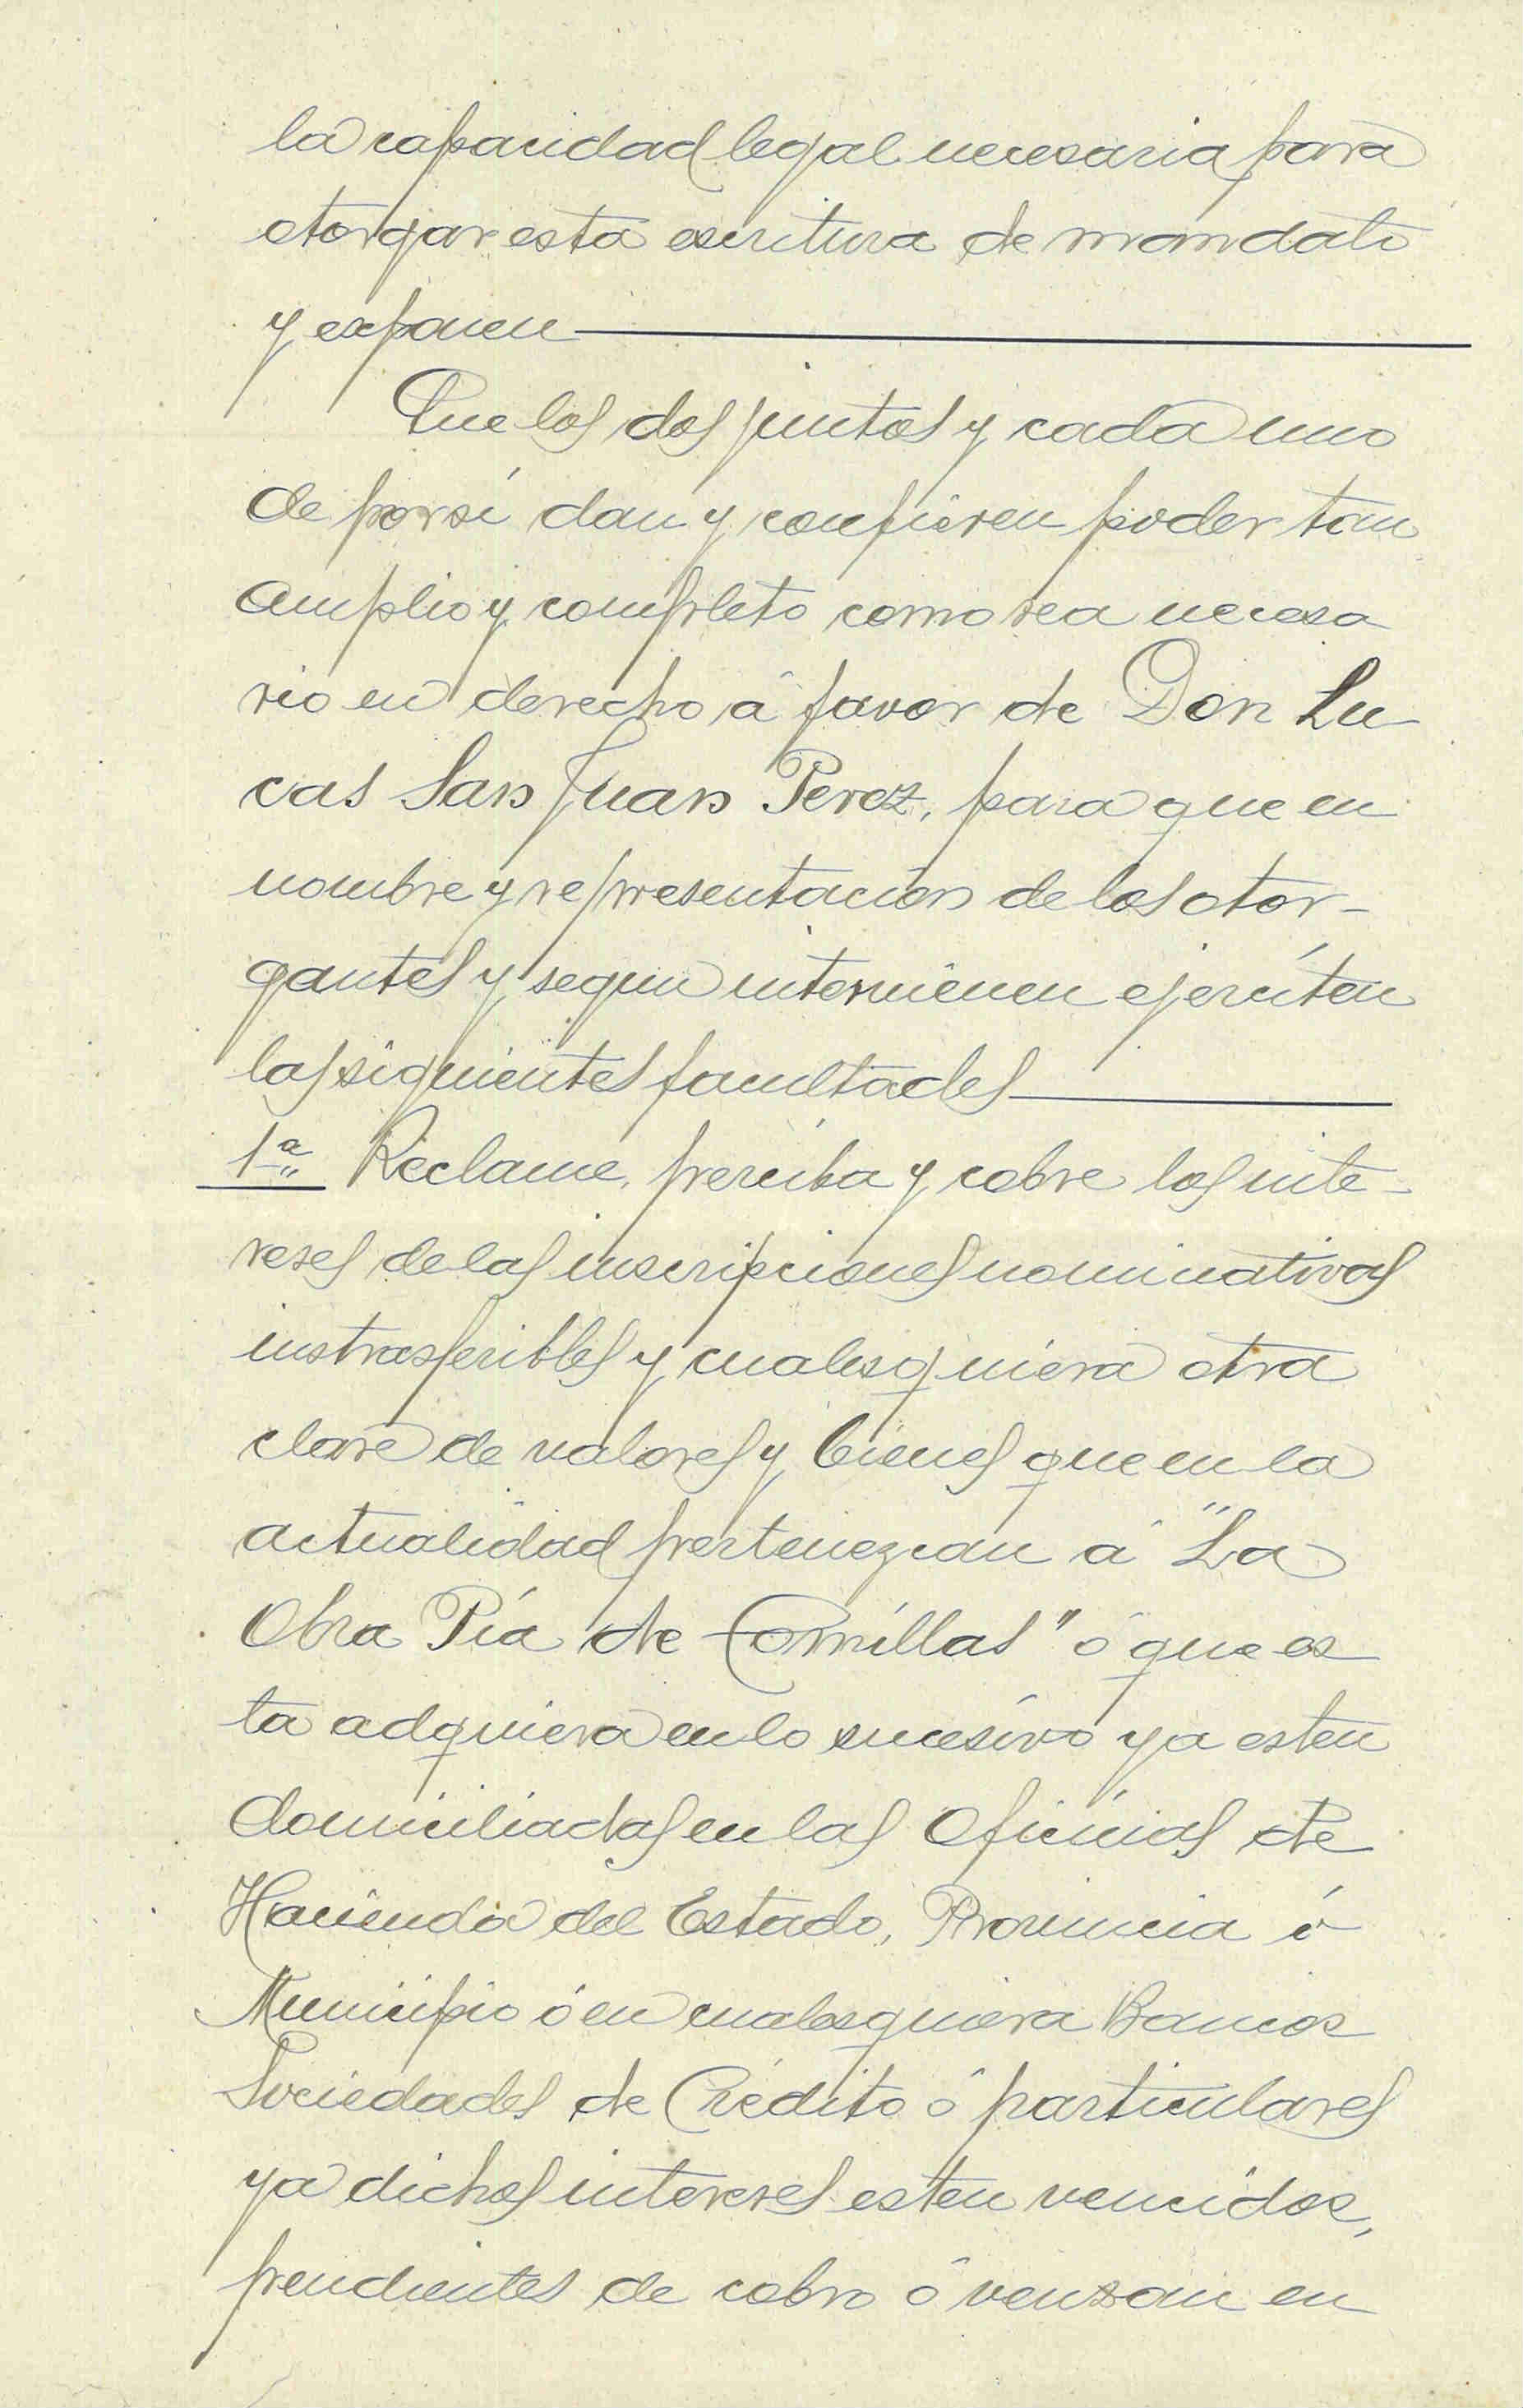 la capacidad legal necesaria para
otorgar esta escritura de mandato
y exponen
Que los dos juntos y cada uno
de por sí dan y confieren poder tan
amplio y completo como sea necesa
rio en derecho á favor de Don Lu-
cas San Juan Perez, para que en
nombre y representación de los otor-
gantes y segun intervienen ejerciten
las siguientes facultades
1ª Reclame, perciba y cobre los inte-
reses de las inscripciones nominativas
instrasferibles y cualesquiera otra
clase de valores y bienes que en la
actualidad pertenezcan á "La
Obra Pía de Comillas" ó que es
ta adquiera en lo sucesivo ya esten
domiciliadas en las Oficinas de
Hacienda del Estado, Provincia ó
Municipio ó en cualesquiera Bancos
Sociedades de Crédito ó particulares
ya dichos intereses esten vencidos,
pendientes de cobro ó venzan en